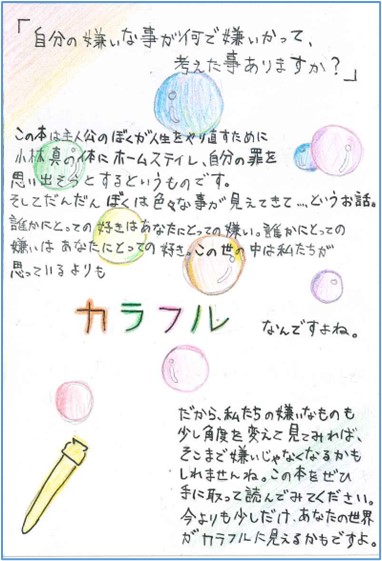 「自分の嫌いな事が何で嫌いかって、
考えた事ありますか？」
この本は主人公のぼくが人生をやり直すために
小林真の体にホームステイし、自分の罪を
思い出そうとするというものです。
そしてだんだんぼくは色々な事が見えてきて…、というお話。
誰かにとっての好きはあなたにとっての嫌い。誰かにとっての
嫌いはあなたにとっての好き。この世の中は私たちが
思っているよりも
カラフル
なんですよね。
だから、私たちの嫌いなものも
少し角度を変えて見てみれば、
そこまで嫌いじゃなくなるかも
しれませんね。この本をぜひ
手に取って読んでみてください。
今よりも少しだけ、あなたの世界
がカラフルに見えるかもですよ。